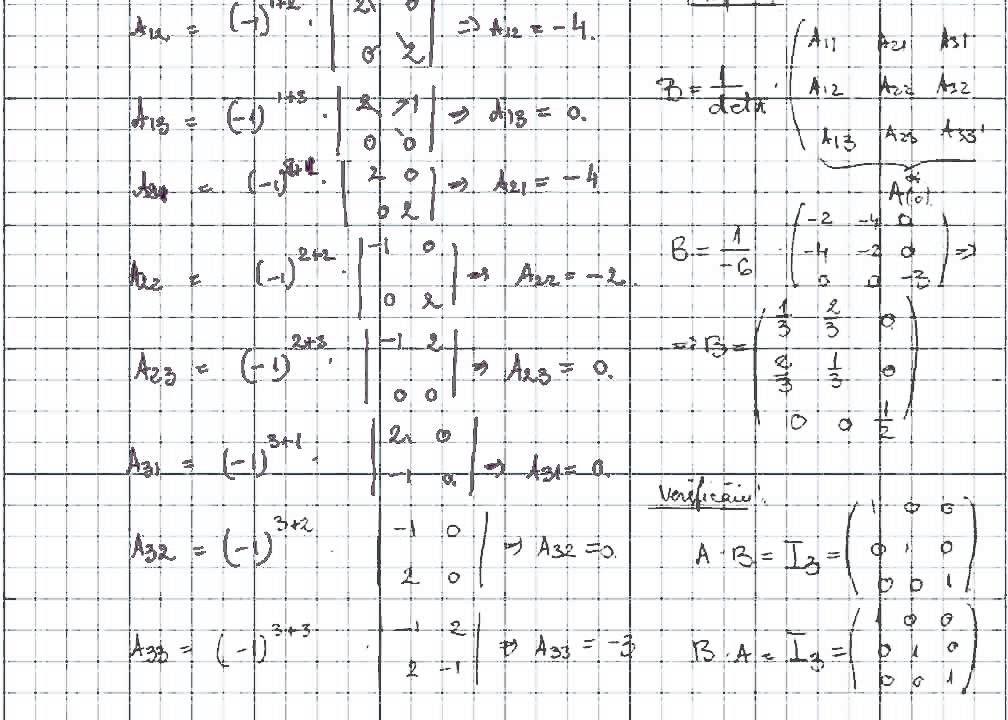 A12 = (-1)^{1+2} · |2 0; 0 2| => A12 = -4.
A13 = (-1)^{1+3} · |2 -1; 0 0| => A13 = 0.
A21 = (-1)^{2+1} · |2 0; 0 2| => A21 = -4
A22 = (-1)^{2+2} · |-1 0; 0 2| => A22 = -2.
A23 = (-1)^{2+3} · |-1 2; 0 0| => A23 = 0.
A31 = (-1)^{3+1} · |2 0; -1 0| => A31 = 0.
A32 = (-1)^{3+2} · |-1 0; 2 0| => A32 = 0.
A33 = (-1)^{3+3} · |-1 2; 2 -1| => A33 = -3
B = 1/detA · (A11 A21 A31; A12 A22 A32; A13 A23 A33)
B = 1/-6 · (-2 -4 0; -4 -2 0; 0 0 -3) =>
=> B = (1/3 2/3 0; 2/3 1/3 0; 0 0 1/2)
Verificăm:
A · B = I3 = (1 0 0; 0 1 0; 0 0 1)
B · A = I3 = (1 0 0; 0 1 0; 0 0 1)